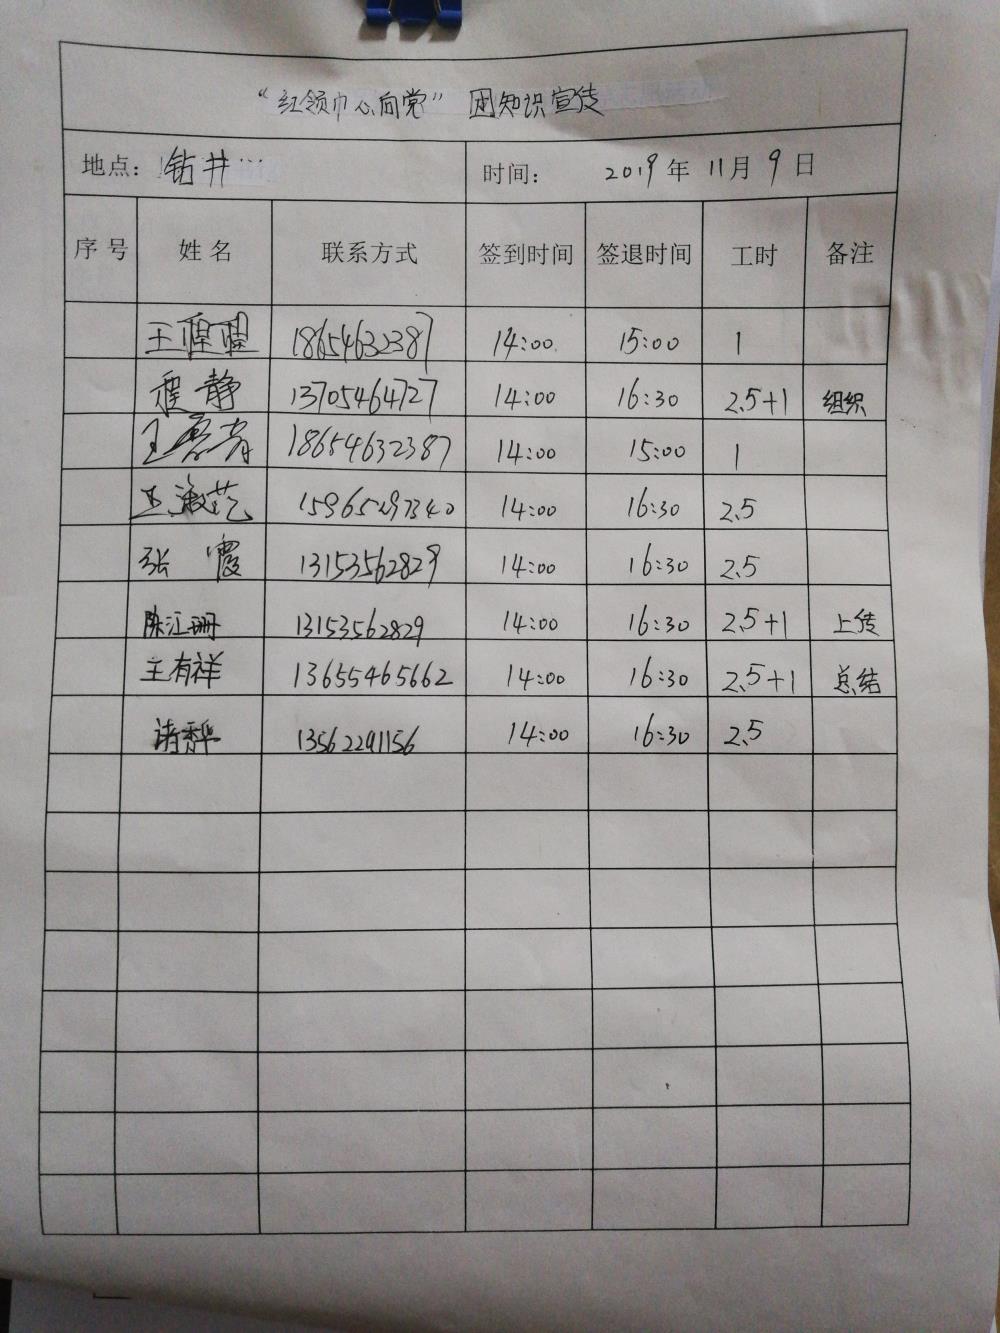 “红领巾心向党” 团知识宣传
地点: 钻井… 时间: 2019年11月9日
序号 姓名 联系方式 签到时间 签退时间 工时 备注
王 18654632387 14:00 15:00 1
程静 13705464727 14:00 16:30 2.5+1 组织
王 18654632387 14:00 15:00 1
王淑范 15965297340 14:00 16:30 2.5
张霞 13153562829 14:00 16:30 2.5
陈江珊 13153562829 14:00 16:30 2.5+1 上传
王有祥 13655465662 14:00 16:30 2.5+1 总结
13562291156 14:00 16:30 2.5